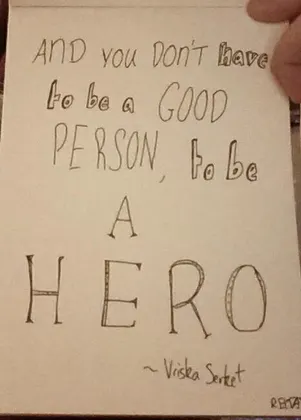 AND YOU DON'T have
to be a GOOD
PERSON, to be
A
HERO
~ Vriska Serket